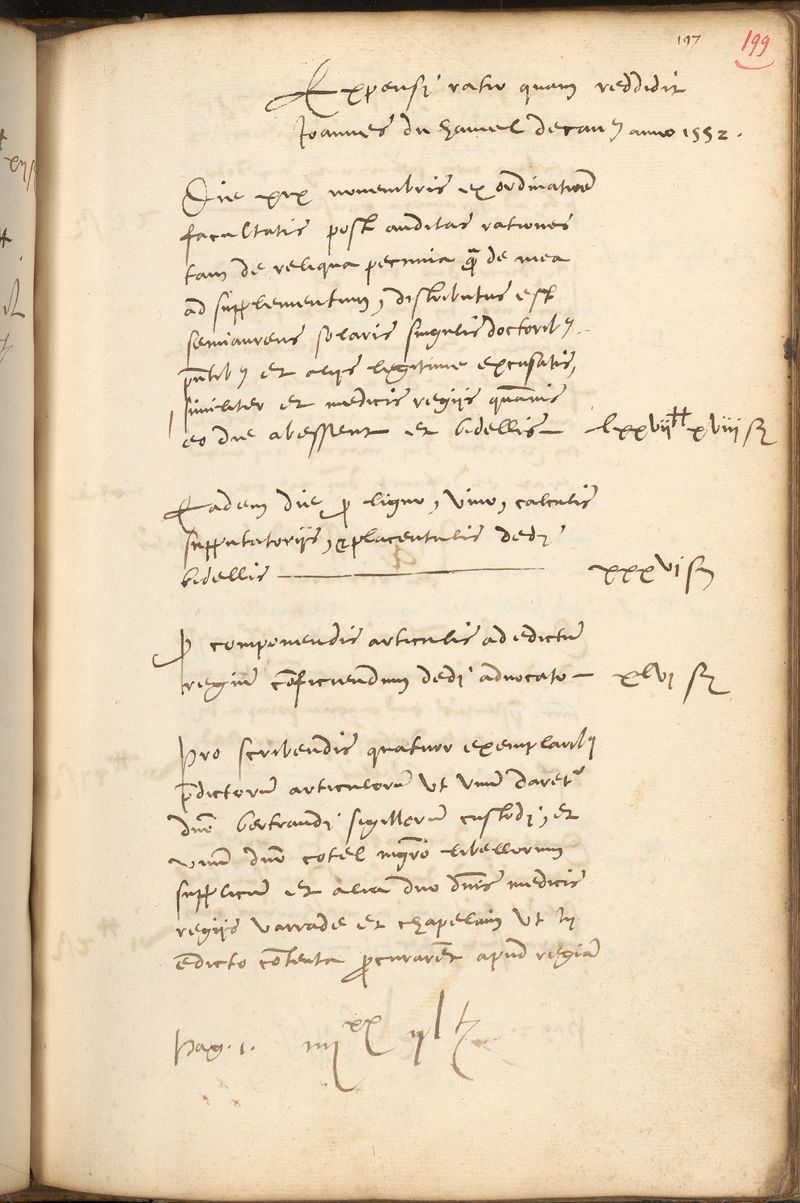 197 199
Expensi ratio quam reddidit
Joannes du hamel decanꝰ anno 1552.
Die xix novembris ex ordinatiōe
facultatis post auditas rationes
tam de reliqua pecunia q̄ de mea
ad supplementum, distributus est
semiaureus solaris singulis doctoribꝰ
pn̄tibꝰ et aliis legitime excusatis,
similiter et medicis regiis quāvis
eo die abessent et bidellis — lxxvii ₶ xviii ß
Eadem die ꝓ ligno, vino, calculis
supputatoriis, placentulis dedi
bidellis — xxxvi ß
ꝓ componendis articulis ad edictū
regiū cōficiendum dedi advocato — xlvi ß
Pro scribendis quatuor exemplaribꝰ
p̄dictorū articulorū ut unū daretᵘʳ
dnō bertrandi sigillorū custodi, et
unū dnō cotel mgr̄o libellorum
supplicū et alia duo dn̄is medicis
regiis varrade et chapelain ut ii
edicto cōtenta ꝓcurarēt apud regiā
Pag. 1. iiii xx ii l